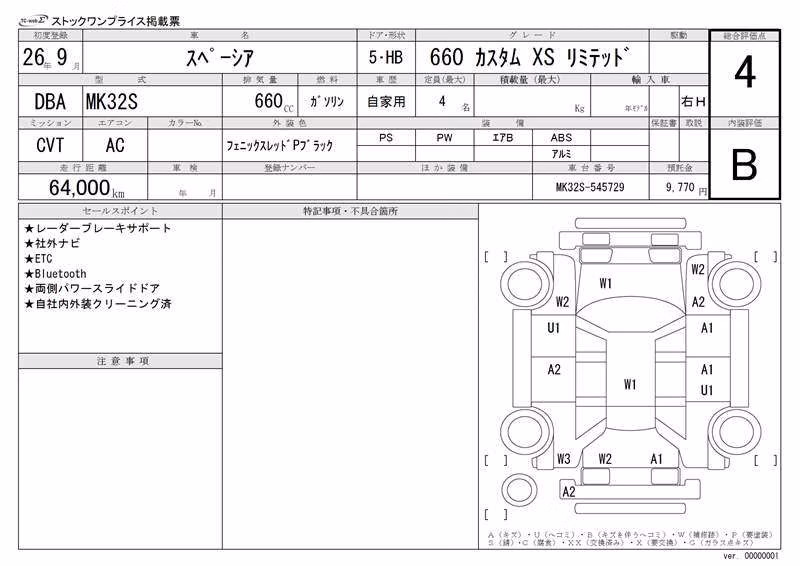 TC-webΣ ストックワンプライス掲載票
初度登録 車名 ドア・形状 グレード 駆動 総合評価点
26年 9月 スペーシア 5・HB 660 カスタム XS リミテッド 4
型式 排気量 燃料 車歴 定員(最大) 積載量(最大) 輸入車
DBA MK32S 660CC ガソリン 自家用 4名 Kg 年モデル 右H
ミッション エアコン カラーNo. 外装色 装備 保証書 取説 内装評価
CVT AC フェニックスレッドPブラック PS PW エアB ABS B
アルミ
走行距離 車検 登録ナンバー ほか装備 車台番号 預託金
64,000km 年 月 MK32S-545729 9,770円
セールスポイント 特記事項・不具合箇所
★レーダーブレーキサポート
★社外ナビ
★ETC
★Bluetooth
★両側パワースライドドア
★自社内外装クリーニング済
注意事項
[ ] [ ]
W2
W1
W2 A2
U1 A1
A2 A1
W1 U1
W3 W2 A1
[ ] [ ]
A2
[ ] [ ]
A(キズ)・U(ヘコミ)・B(キズを伴うヘコミ)・W(補修跡)・P(要塗装)
S(錆)・C(腐食)・XX(交換済み)・X(要交換)・G(ガラス点キズ)
ver. 00000001